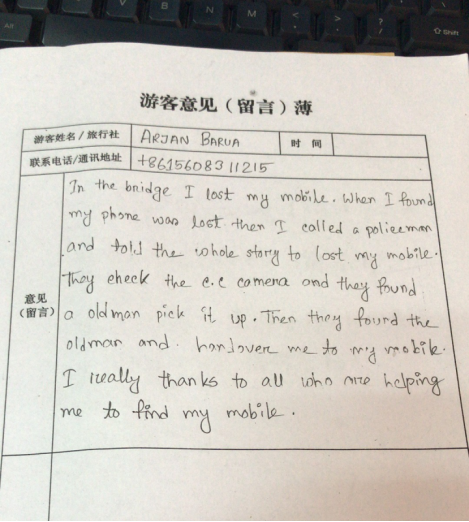 游客意见（留言）薄
游客姓名/旅行社 ARJAN BARUA 时 间
联系电话/通讯地址 +8615608311215
意见
（留言）
In the bridge I lost my mobile. When I found
my phone was lost. then I called a policeman
and told the whole story to lost my mobile.
They check the c.c camera and they found
a oldman pick it up. Then they found the
oldman and handover me to my mobile.
I really thanks to all who are helping
me to find my mobile.